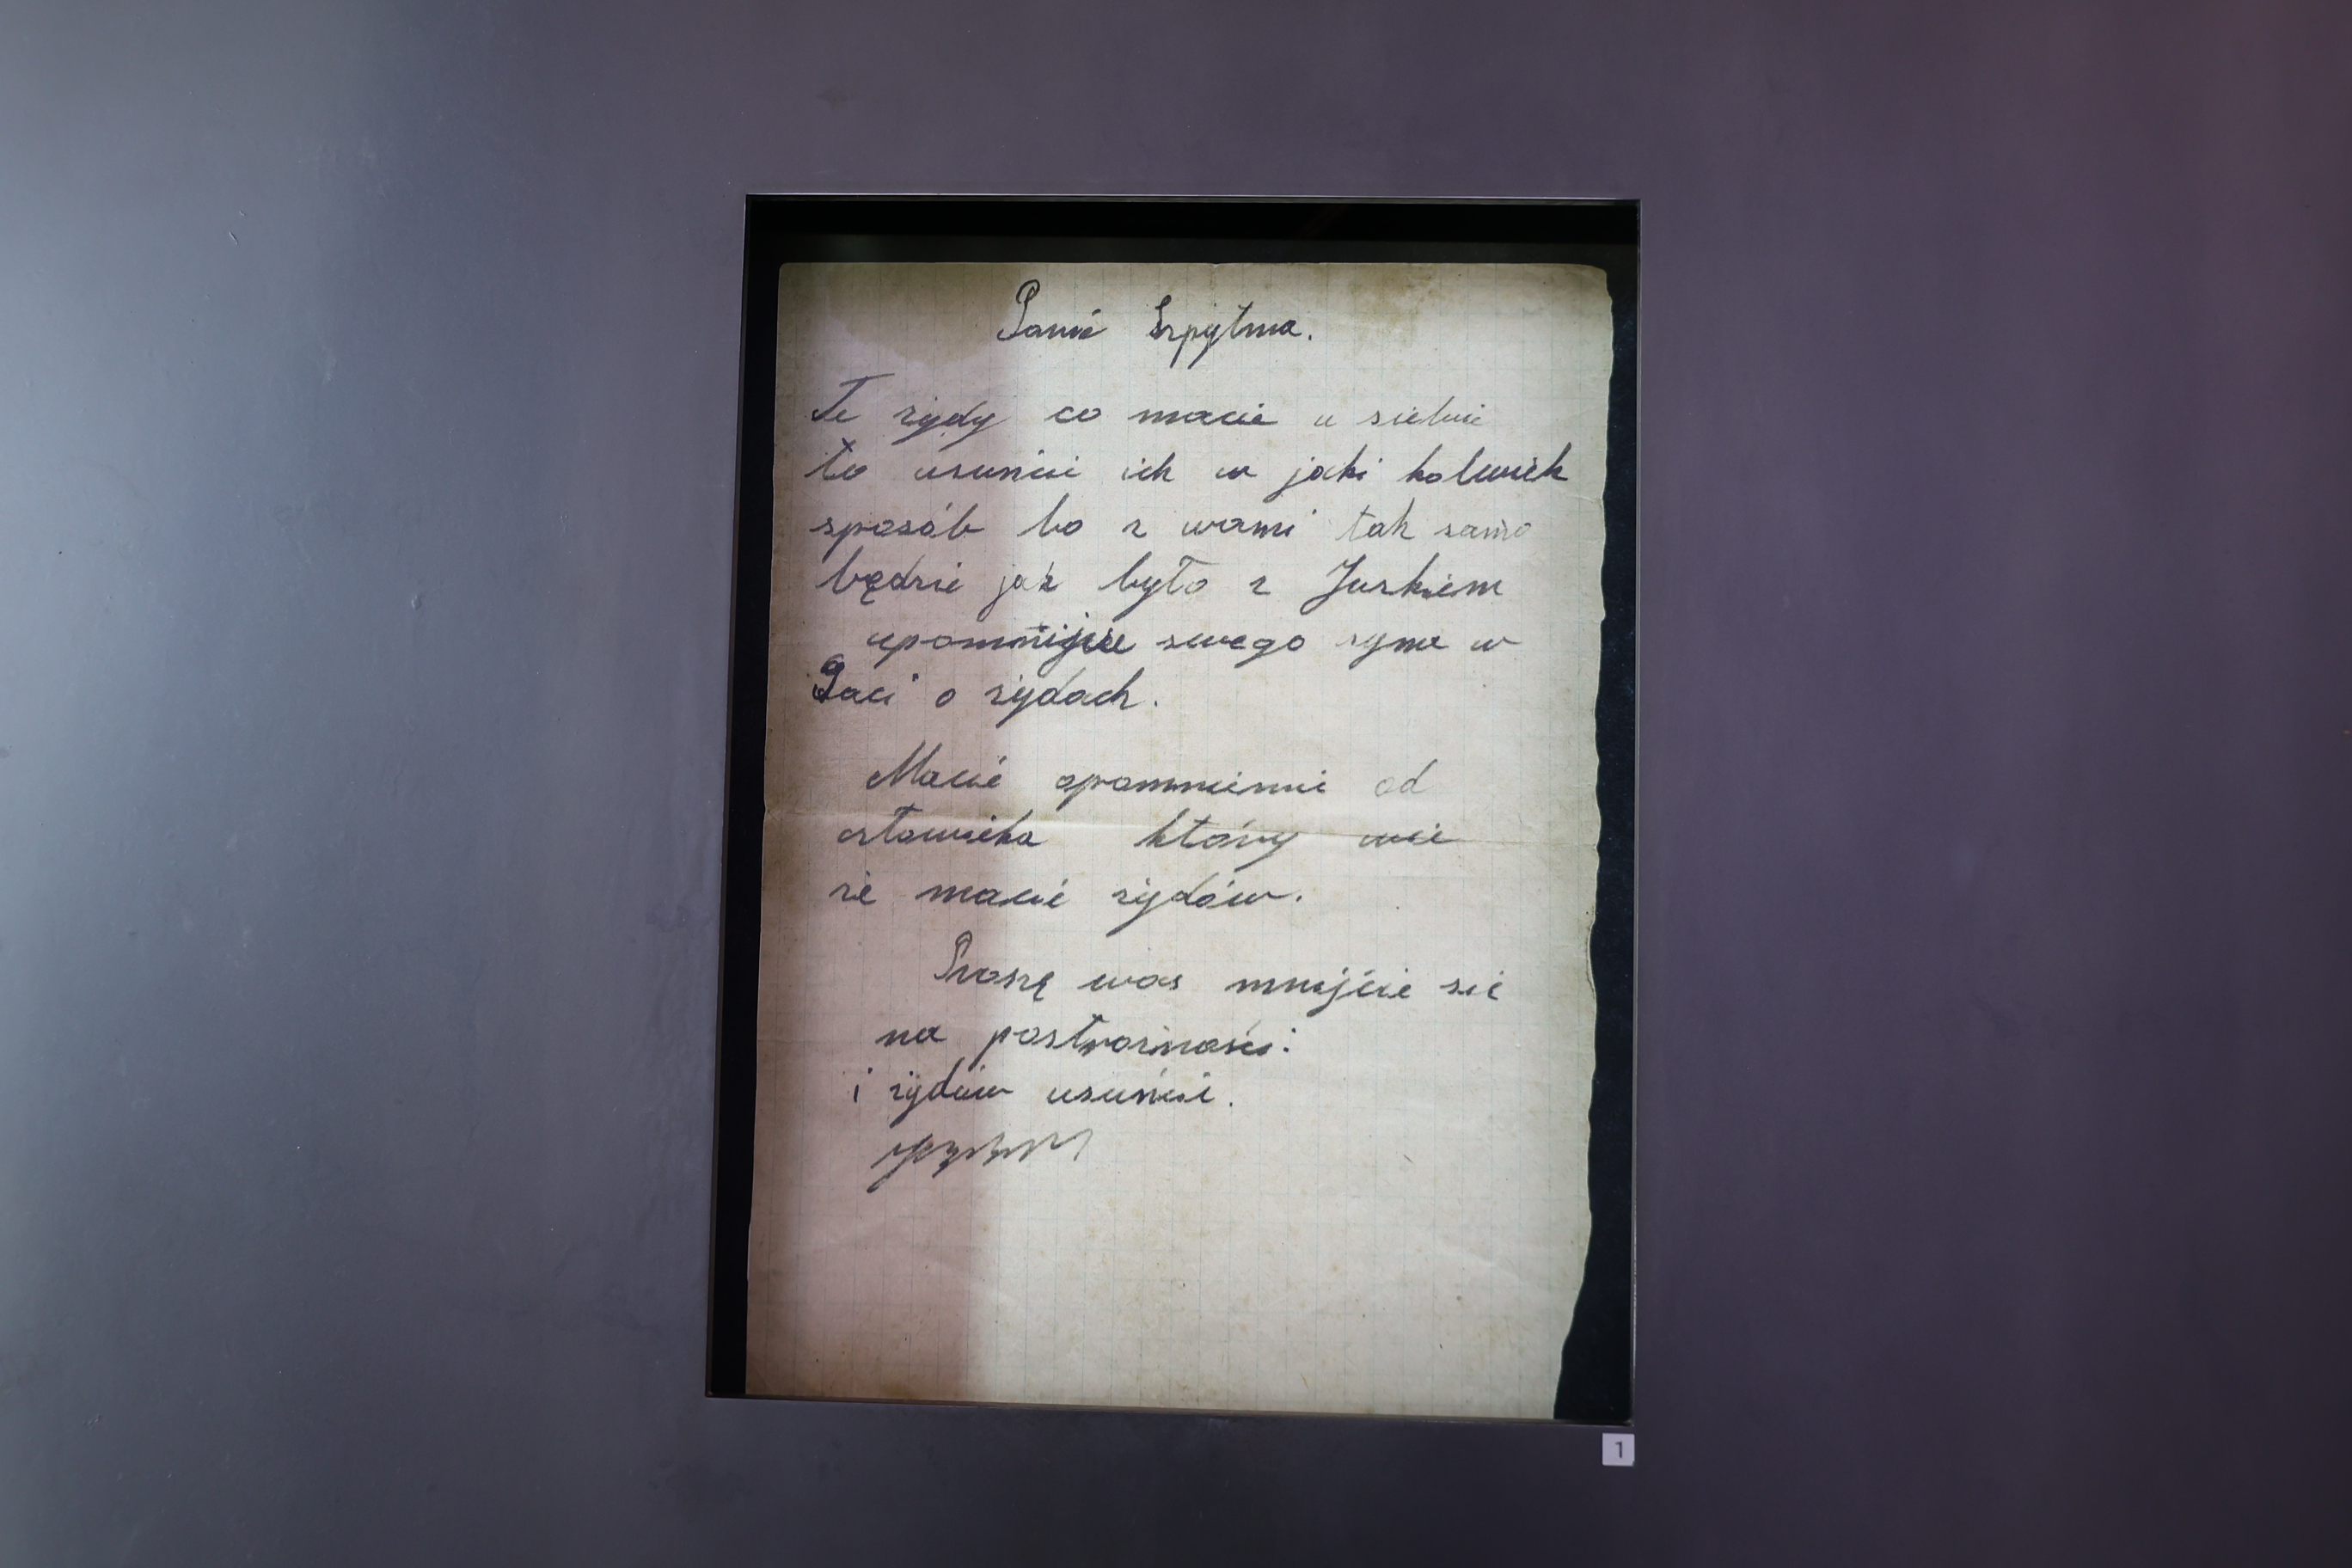 Panie Szpytma.
Te żydy co macie u siebie
to usuncie ich w jaki kolwiek
sposób bo z wami tak samo
będzie jak było z Juzkiem
upomnijcie swego syna w
Gaci o żydach.
Macie opomnienie od
człowieka który wie
że macie żydów.
Proszę was mniejcie sie
na postrożności:
i żydów usuńcie.
1